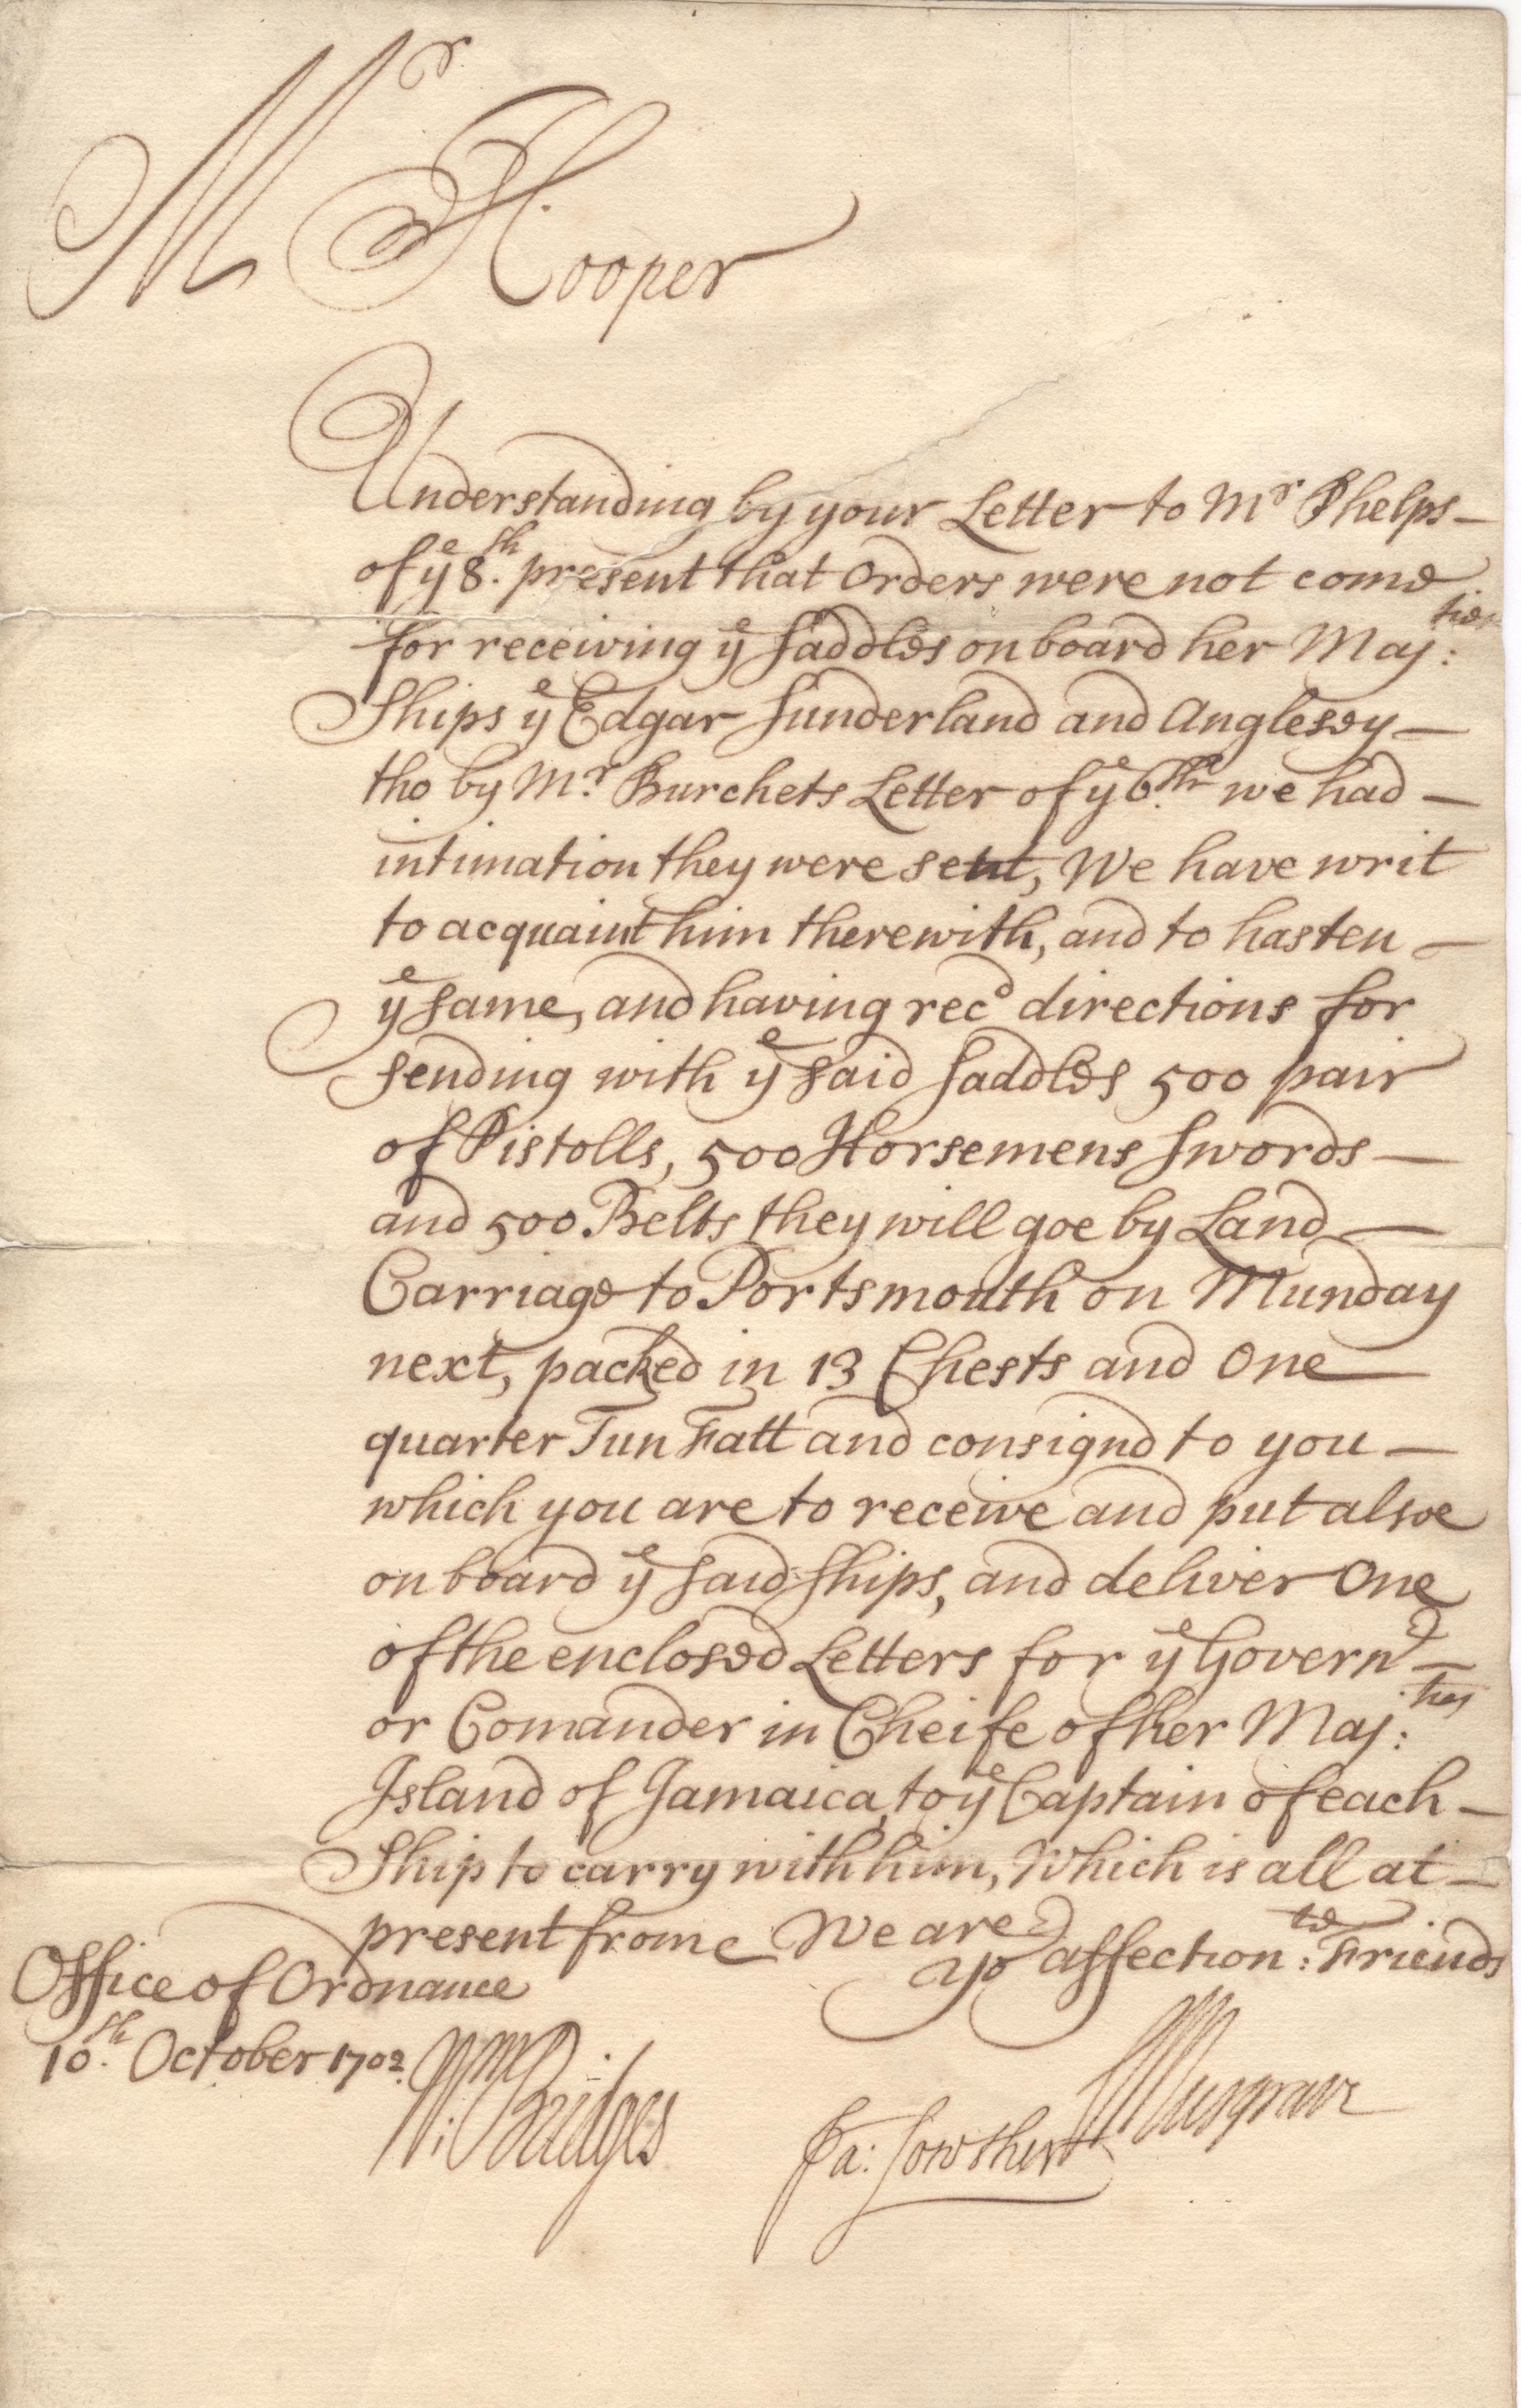 Mr Hooper
Understanding by your Letter to Mr Phelps
of ye 8th. present that Orders were not come
for receiving ye Saddles on board her Maj:ties
Ships ye Edgar Sunderland and Anglesey
tho by Mr. Burchets Letter of ye 6th. we had
intimation they were sent, We have writ
to acquaint him therewith, and to hasten
ye same, and having recd directions for
sending with ye said Saddles 500 pair
of Pistolls, 500 Horsemens Swords
and 500 Belts they will goe by Land
Carriage to Portsmouth on Munday
next, packed in 13 Chests and One
quarter Tun Fatt and consignd to you
which you are to receive and put alsoe
on board ye said Ships, and deliver One
of the enclosed Letters for ye Governr
or Comander in Cheife of her Maj:ties
Island of Jamaica, to ye Captain of each
Ship to carry with him, Which is all at
present frome We are
yor affection:te Friends
Office of Ordnance
10th. October 1702.
Wm: Bridges
Ja: Lowther
CMusgrave